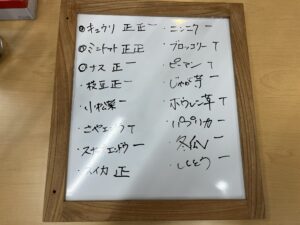 ◎キュウリ 正正一
◎ミニトマト 正正
◎ナス 正一
・枝豆 正一
・小松菜 一
・さやエンドウ T
・スナップエンドウ 一
・スイカ 正
・ニンニク 一
・ブロッコリー T
・ピーマン T
・じゃが芋 一
・ホウレン草 T
・パプリカ 一
・冬瓜 一
・ししとう 一